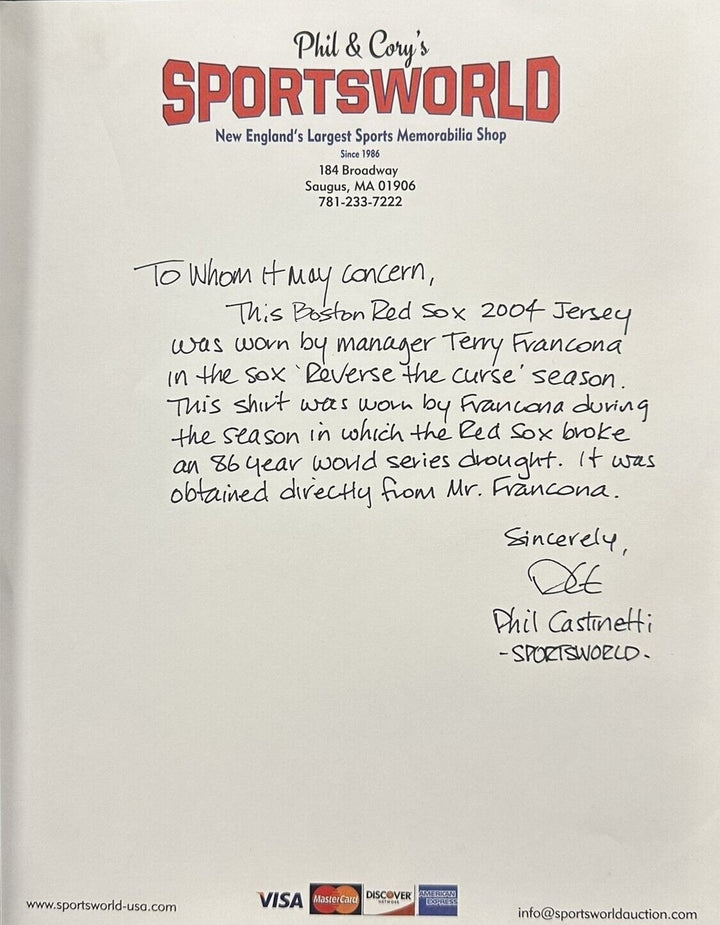 Phil & Cory's
SPORTSWORLD
New England's Largest Sports Memorabilia Shop
Since 1986
184 Broadway
Saugus, MA 01906
781-233-7222
To Whom It May Concern,
This Boston Red Sox 2004 Jersey
was worn by manager Terry Francona
in the Sox 'Reverse the curse' season.
This shirt was worn by Francona during
the season in which the Red Sox broke
an 86 year world series drought. It was
obtained directly from Mr. Francona.
Sincerely,
Phil Castinetti
-SPORTSWORLD-
www.sportsworld-usa.com
VISA MasterCard DISCOVER NETWORK AMERICAN EXPRESS
info@sportsworldauction.com